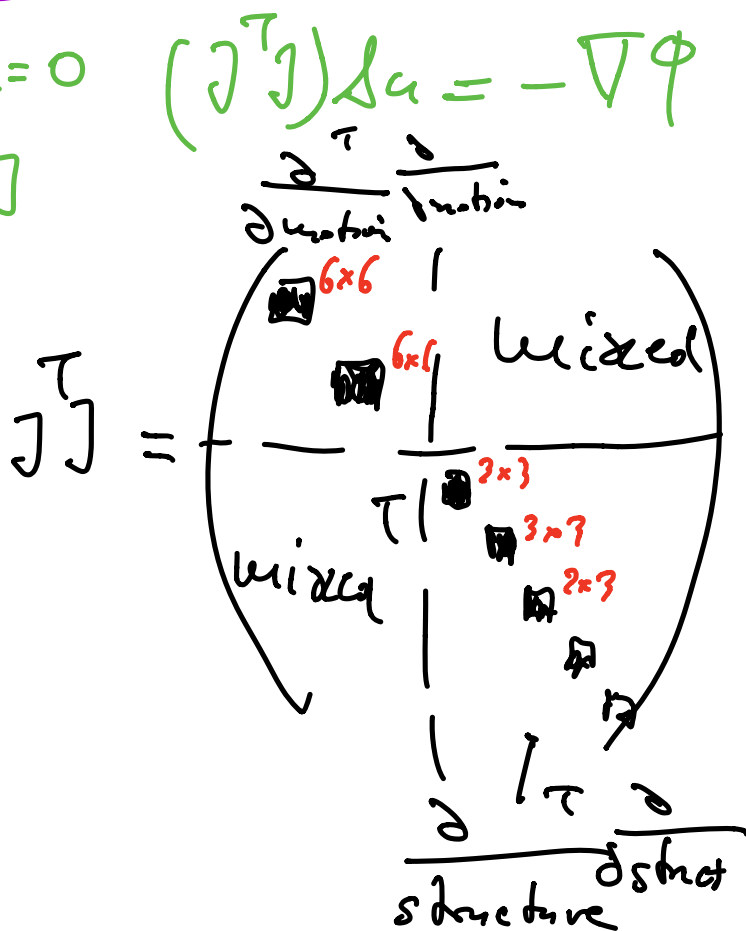 =0 (JᵀJ)Δu = -∇φ
]
∂ᵀ ∂
∂motion ∂motion
6×6
6×6 mixed
JᵀJ =
3×3
T 3×3
mixed 3×3
∂ᵀ ∂
structure ∂struct